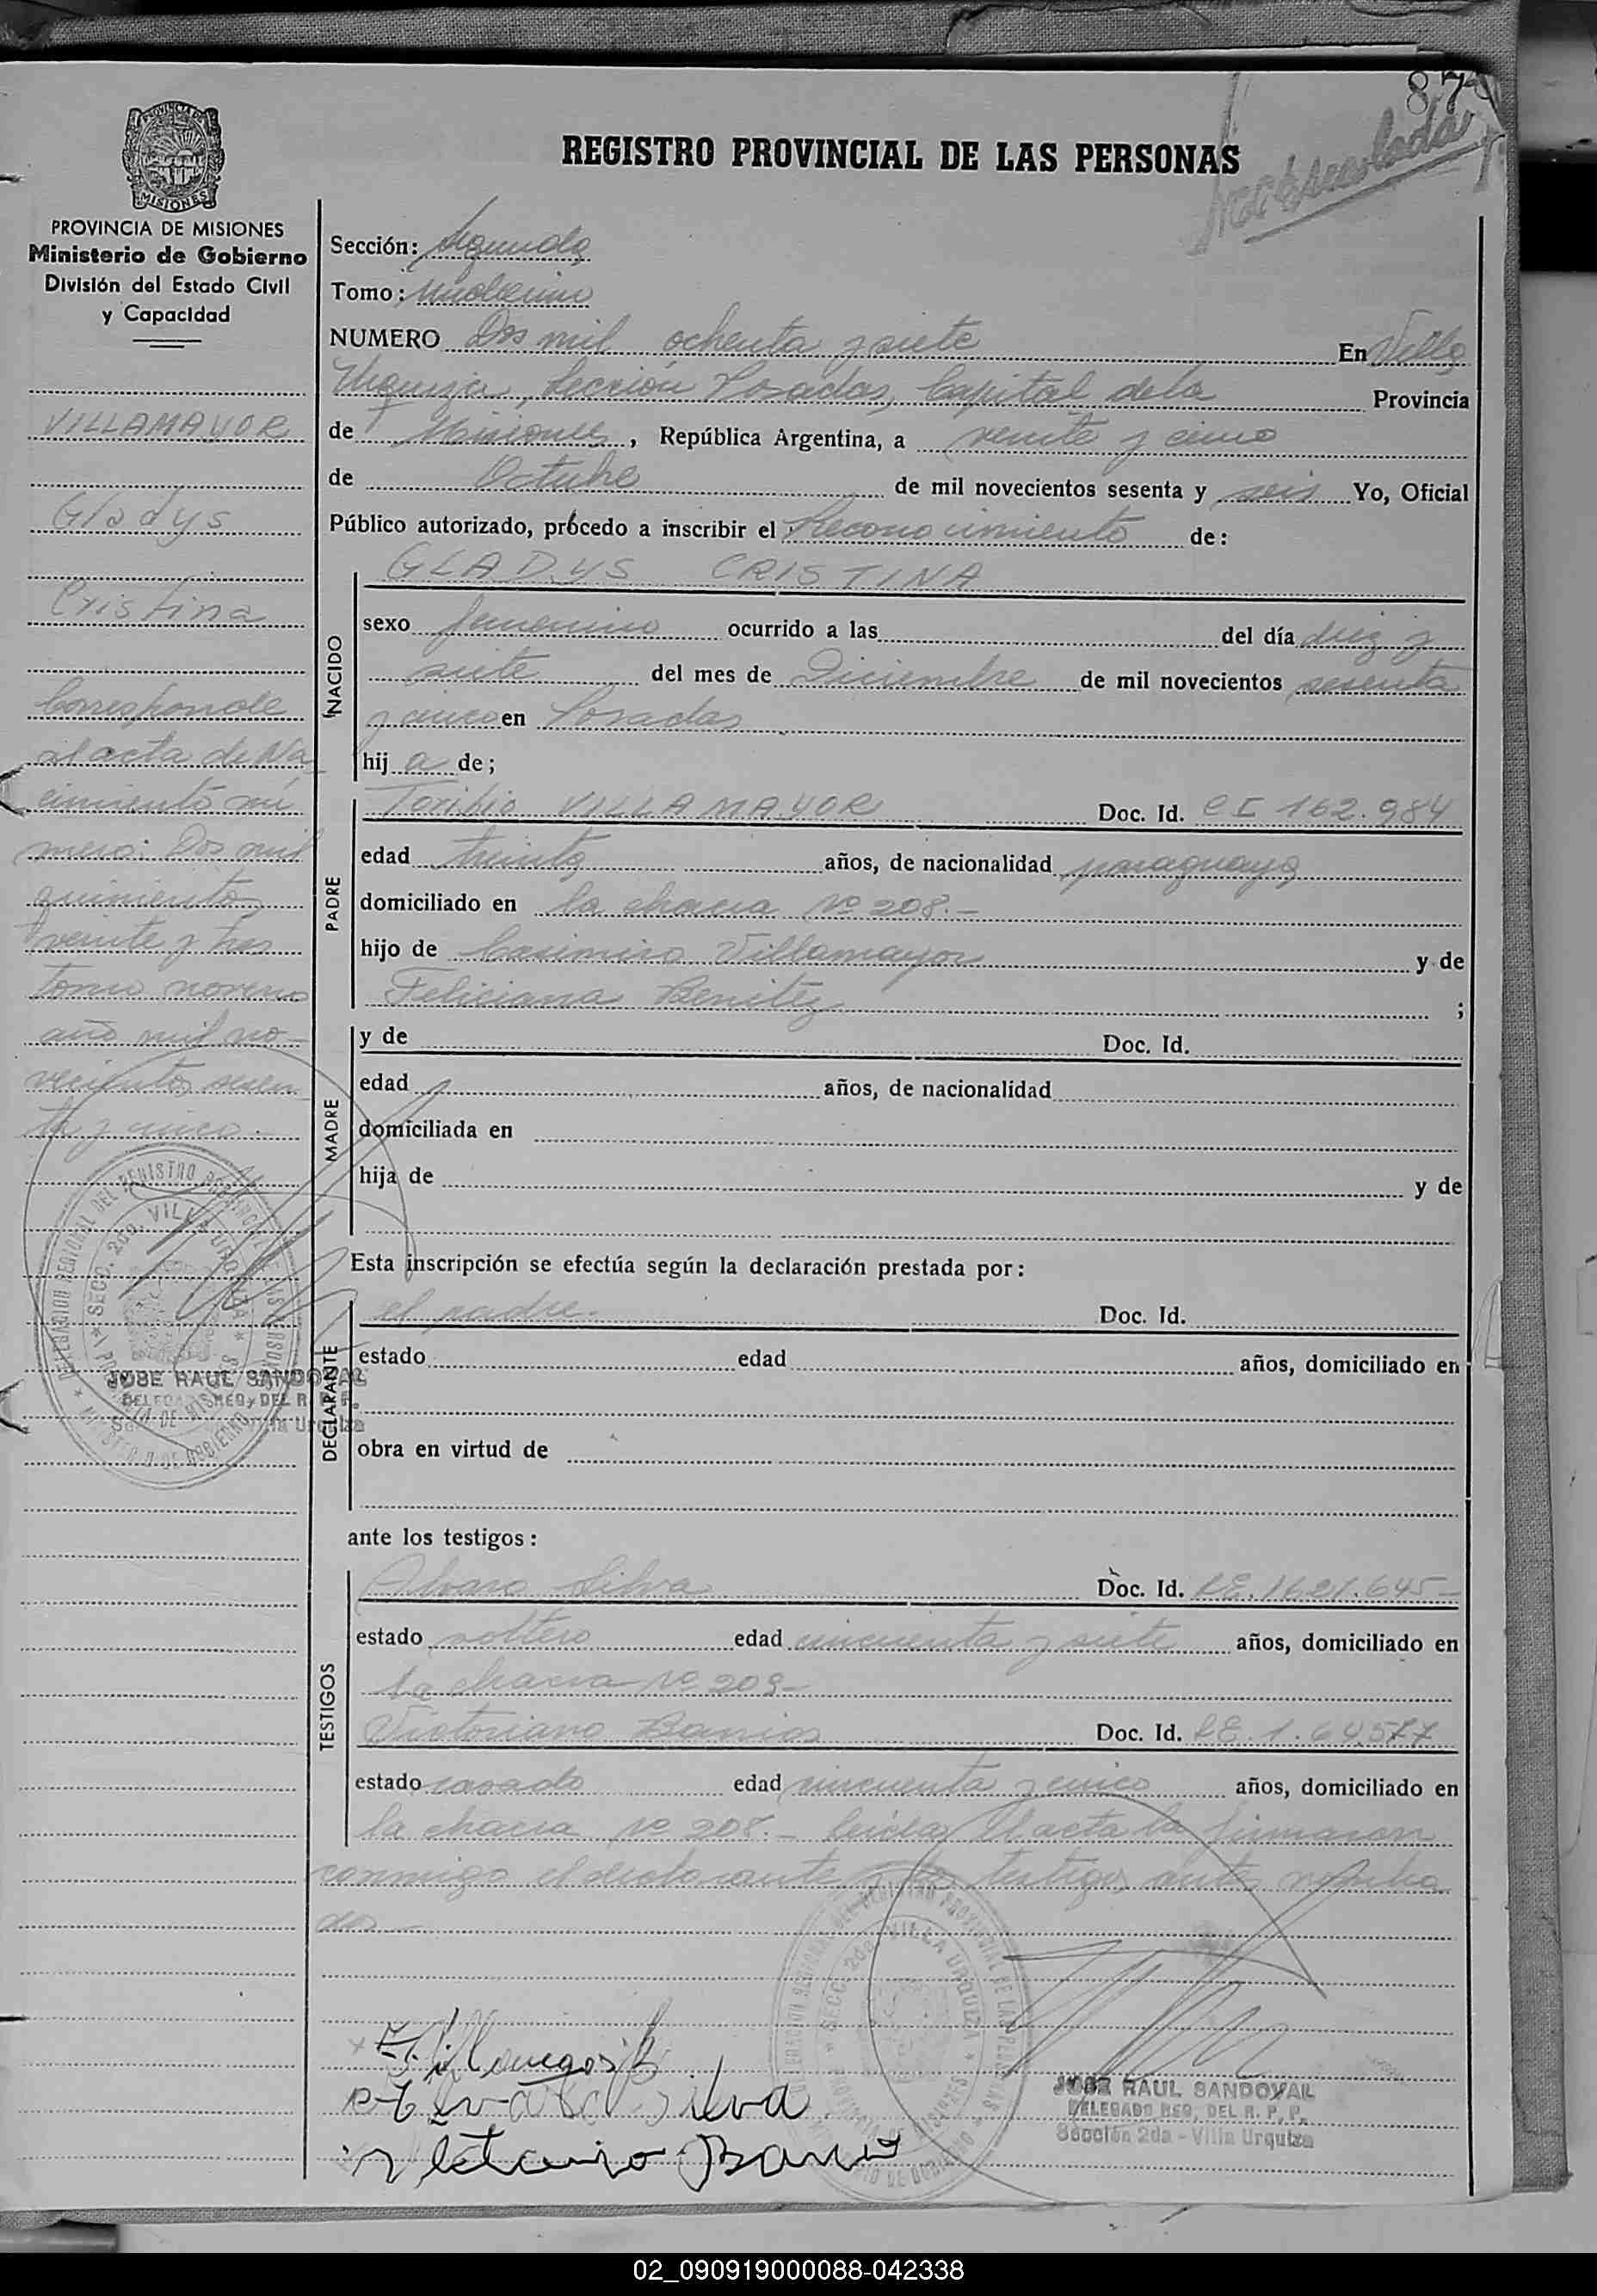 87
REGISTRO PROVINCIAL DE LAS PERSONAS
PROVINCIA DE MISIONES
Ministerio de Gobierno
División del Estado Civil
y Capacidad
VILLAMAYOR
Gladys
Cristina
Corresponde
al acta de Na
cimiento nú
mero: Dos mil
quinientos
veinte y tres
tomo noveno
año mil no-
vecientos sesen
ta y cinco.-
JOSE RAUL SANDOVAL
DELEGADO REG. DEL R. P. P.
Sección: Segunda
Tomo:
NUMERO Dos mil ochenta y siete En Villa
Urquiza, Sección Posadas, Capital de la Provincia
de Misiones, República Argentina, a veinte y cinco
de Octubre de mil novecientos sesenta y seis Yo, Oficial
Público autorizado, procedo a inscribir el Reconocimiento de:
GLADYS CRISTINA
NACIDO
sexo femenino ocurrido a las del día diez y
siete del mes de Diciembre de mil novecientos sesenta
y cinco en Posadas
hij a de;
PADRE
Toribio VILLAMAYOR Doc. Id. CI 162.984
edad treinta años, de nacionalidad paraguaya
domiciliado en la chacra No 208.-
hijo de Casimiro Villamayor y de
Feliciana Benitez ;
MADRE
y de Doc. Id.
edad años, de nacionalidad
domiciliada en
hija de y de
Esta inscripción se efectúa según la declaración prestada por:
DECLARANTE
el padre.- Doc. Id.
estado edad años, domiciliado en
obra en virtud de
ante los testigos:
TESTIGOS
Alvaro Silva Doc. Id. LE. 1621.645-
estado soltero edad cincuenta y siete años, domiciliado en
la chacra No 209-
Victoriano Barrios Doc. Id.
estado casado edad cincuenta y cinco años, domiciliado en
la chacra No 208.- leída el acta la firmaron
conmigo el declarante y los testigos ante nombra
dos-
Silva
JOSE RAUL SANDOVAL
DELEGADO REG. DEL R. P. P.
Sección 2da - Villa Urquiza
02_090919000088-042338